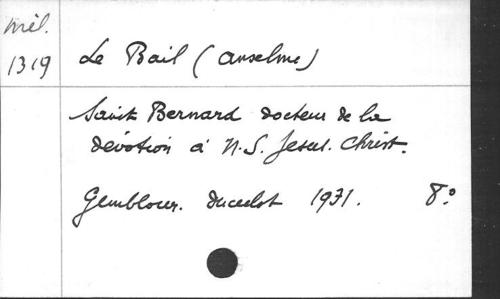 Mél.
1319
Le Bail (Anselme)
Saint Bernard docteur de la
dévotion à N.S. Jesus. Christ.
Gembloux. Duculot 1931. 8°